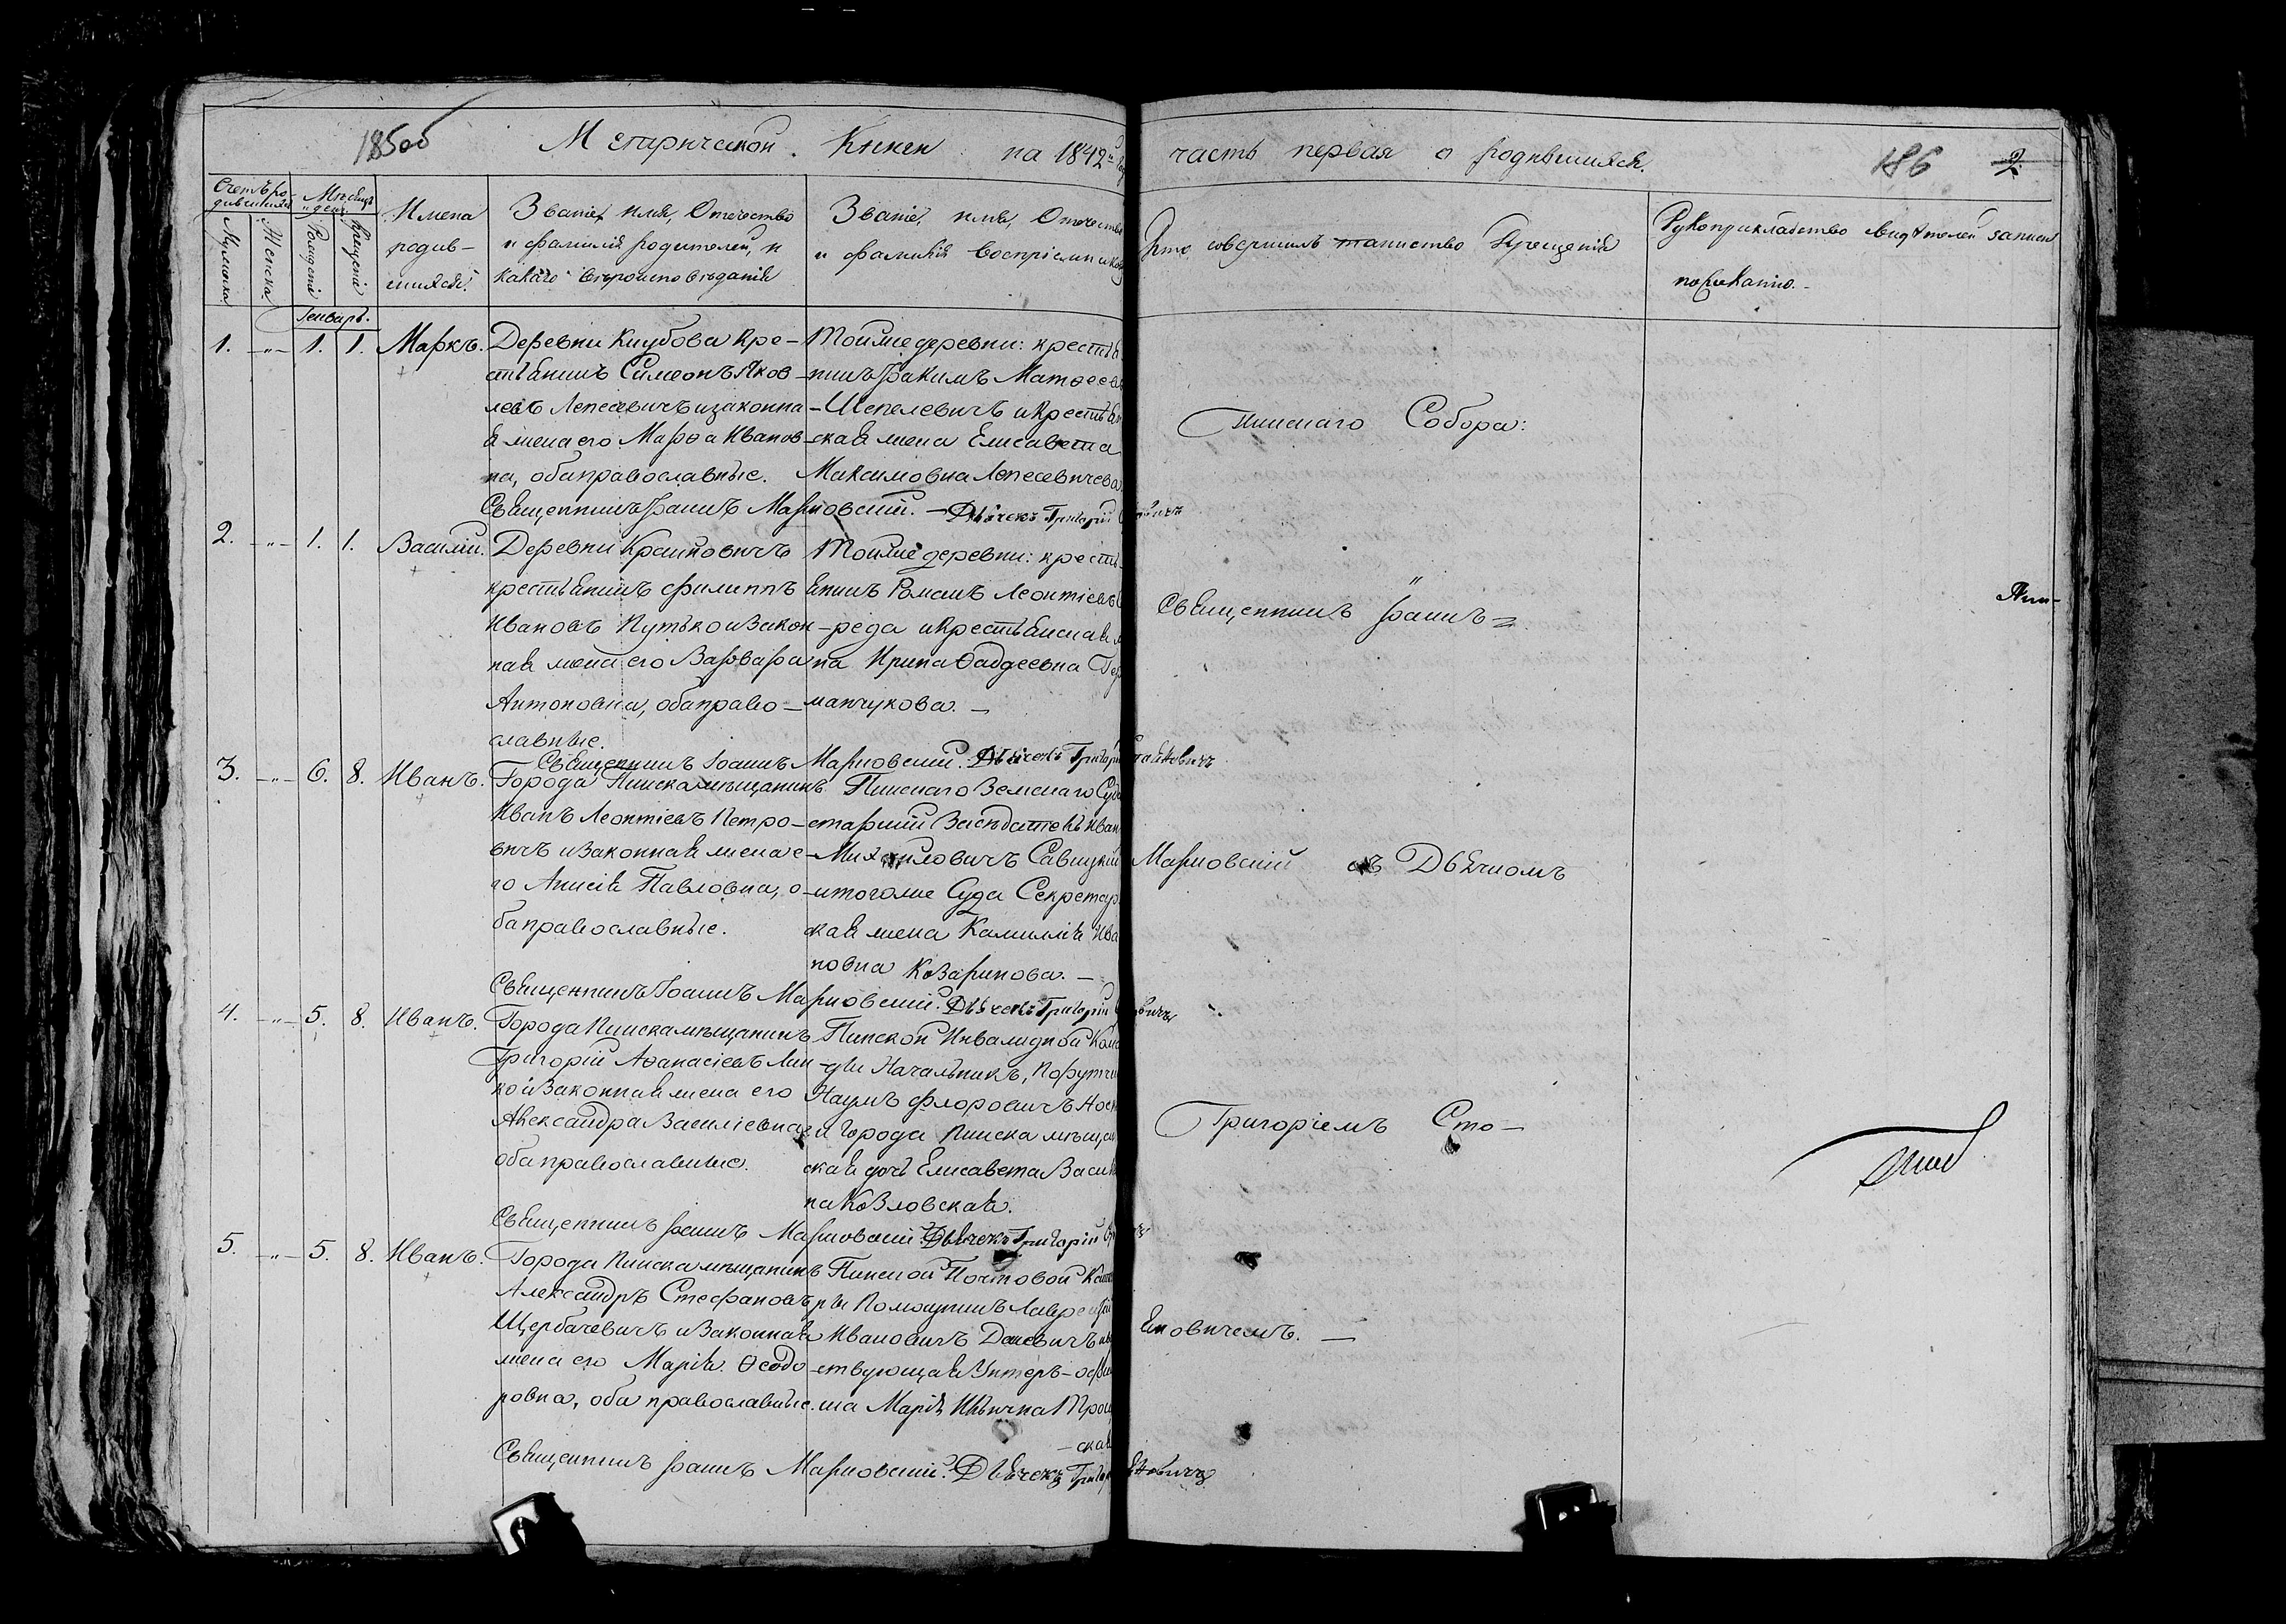 185об Метрической Книги на 1842й
часть первая о родившихся. 186 2
Счетъ ро-
дившихся
Мѣсяцъ
и день
Мужеска
Женска
Рожденія
Крещенія
Имена
родив-
шихся.
Званіе, имя, Отечество
и фамилія родителей, и
какаго вѣроисповѣданія
Званіе, имя, Отчество
и фамилія воспріемниковъ
Кто совершилъ таинство Крещенія
Рукоприкладство свидѣтелей записи
по желанію.
Генварь.
1. -"- 1. 1. Маркъ.
Деревни Кнубова кре-
стьянинъ Симеонъ Яков-
левъ Лепесевичъ и законна-
я жена его Марѳа Иванов-
на, оба православные.
Тойже деревни: крестья
нинъ Іоакимъ Матѳеевъ
Шепелевичъ и крестьян
ская жена Елисавета
Максимовна Лепесевичева
Священникъ Іоаннъ Марновский. - Дьячекъ Григорій
2. -"- 1. 1. Василій.
Деревни Крайновичъ
крестьянинъ Филиппъ
Ивановъ Путько и Закон-
ная жена его Варвара
Антоновна, оба право-
славные.
Тойже деревни: кресть-
янинъ Романъ Леонтіевъ
реда и крестьянская
на Ирина Ѳаддеевна
манчукова. -
Священникъ Іоаннъ Марновский. Дьячекъ Григорій Стояновичъ
3. -"- 6. 8. Иванъ.
Города Пинска мѣщанинъ
Иванъ Леонтіевъ Петро-
вичъ и Законная жена е-
го Анисія Павловна, о-
ба православные.
Пинскаго Земскаго Суда
старшій Засѣдатель Иван
Михайловичъ Савицкій
и тогоже Суда Секретар
ская жена Камиллія Ива
новна Козаринова. -
Священникъ Іоаннъ Марновский. Дьячекъ Григорій
4. -"- 5. 8. Иванъ.
Города Пинска мѣщанинъ
Григорій Аѳанасіевъ Лин
ко и Законная жена его
Александра Василіевна
оба православные.
Пинской Инвалидной Кома
ды Начальникъ, Поручи
Наумъ Флоровичъ
и Города Пинска мѣщан
ская дочь Елисавета Васил
на Козловская.
Священникъ Іоаннъ Марновский. Дьячекъ Григорій
5. -"- 5. 8. Иванъ.
Города Пинска мѣщанинъ
Александръ Стефановъ
Щербачевичъ и Законная
жена его Марія Ѳеодо-
ровна, оба православные.
Пинской Почтовой Кон
ры Помощникъ Лаврентій
Ивановичъ Даневичъ
ствующая Унтеръ-офи
ша Марія Ильична
-ская
Священникъ Іоаннъ Марновский. Дьячекъ Григорій
Пинскаго Собора:
Священникъ Іоаннъ
Марновскій съ Дьячкомъ
Григоріемъ Сто-
яновичемъ. -